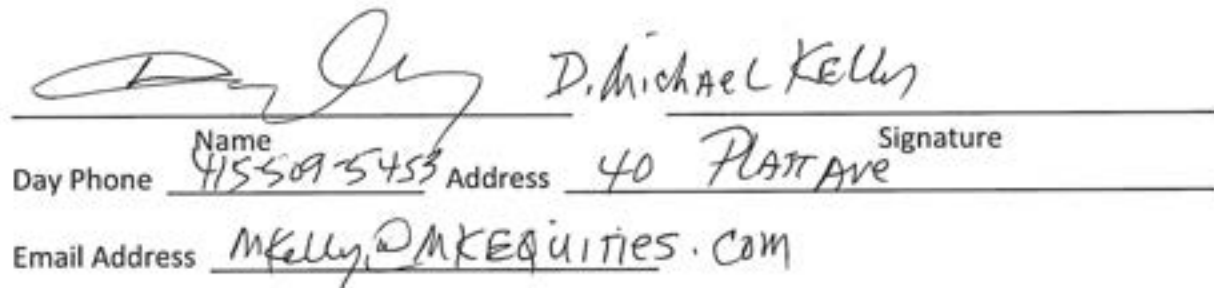 D. Michael Kelly
Name Signature
Day Phone 415-509-5453 Address 40 Platt Ave
Email Address MKelly@MKEQUITIES.COM